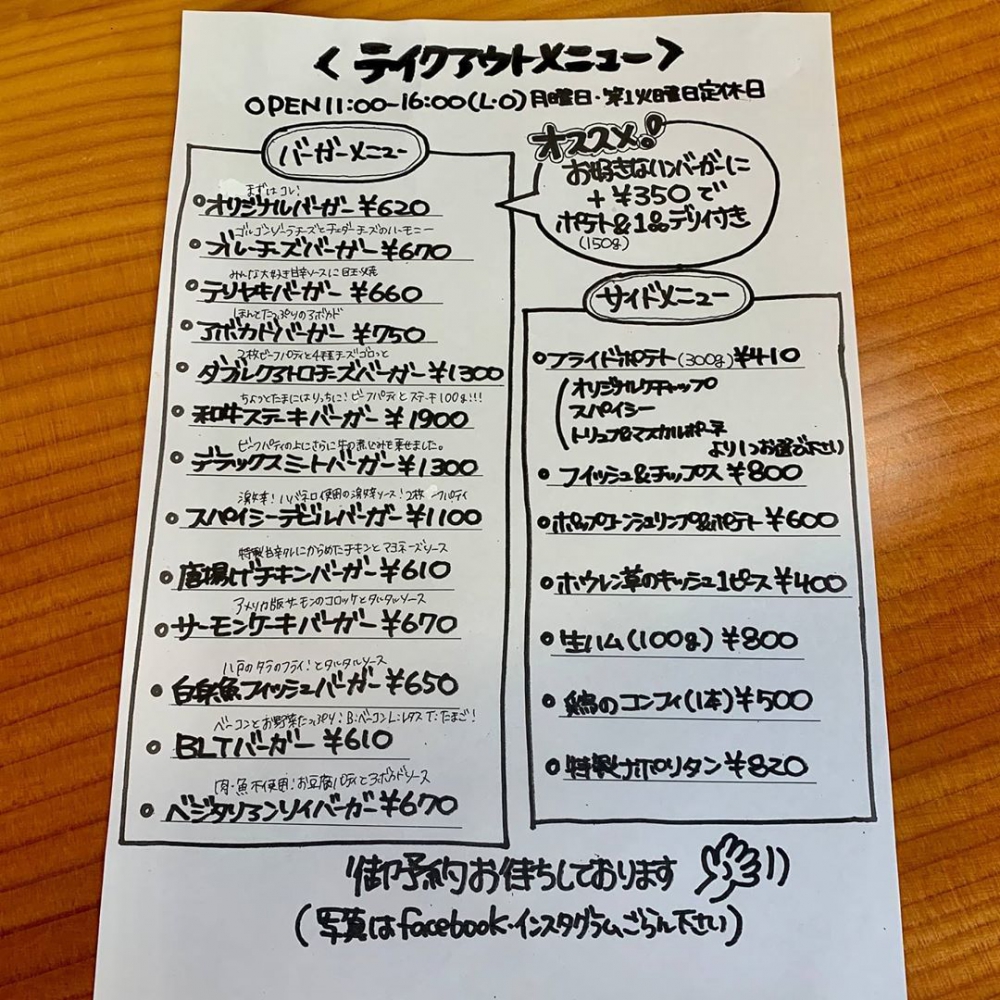 <テイクアウトメニュー>
OPEN11:00-16:00(L.O)月曜日・第1火曜日定休日
バーガーメニュー
まずはコレ!
オリジナルバーガー ¥620
ゴルゴンゾーラチーズとチェダーチーズのハーモニー
ブルーチーズバーガー ¥670
みんな大好き甘辛ソースに目玉焼
テリヤキバーガー ¥660
ほんとたっぷりのアボカド
アボカドバーガー ¥750
2枚ビーフパティと4種チーズゴロっと
ダブルクアトロチーズバーガー ¥1300
ちょっとたまにはりっちに!ビーフパティとステーキ100g!!!
和牛ステーキバーガー ¥1900
ビーフパティの上にさらに牛の煮込みを乗せました。
デラックスミートバーガー ¥1300
激辛!ハバネロ使用の激辛ソース!2枚ビーフパティ
スパイシーデビルバーガー ¥1100
特製甘辛タレにからめたチキンとマヨネーズソース
唐揚げチキンバーガー ¥610
アメリカ版サーモンのコロッケとタルタルソース
サーモンケーキバーガー ¥670
八戸のタラのフライ!とタルタルソース
白身魚フィッシュバーガー ¥650
ベーコンとお野菜たっぷり!B:ベーコンL:レタスT:たまご!
BLTバーガー ¥610
肉・魚不使用!お豆腐パティとアボカドソース
ベジタリアンソイバーガー ¥670
オススメ!
お好きなハンバーガーに
+¥350で
ポテト&1品デリィ付き
(150g)
サイドメニュー
フライドポテト(300g)¥410
オリジナルケチャップ
スパイシー
トリュフ&マスカルポーネ
より1つお選び下さい
フィッシュ&チップス ¥800
ポップコーンシュリンプ&ポテト ¥600
ホウレン草のキッシュ1ピース ¥400
生ハム(100g) ¥800
鶏のコンフィ(1本) ¥500
特製ナポリタン ¥820
御予約お待ちしております
(写真はfacebook・インスタグラムごらん下さい)